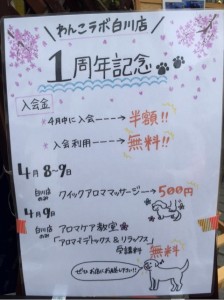 わんこラボ白川店
1周年記念
入会金
4月中に入会----→半額!!
入会利用----→無料!!
4月8~9日
白川店のみ クイックアロママッサージ→500円
4月9日
白川店のみ アロマケア教室
「アロマデトックス&リラックス」
受講料 無料
ぜひ お店にお越し下さい!!